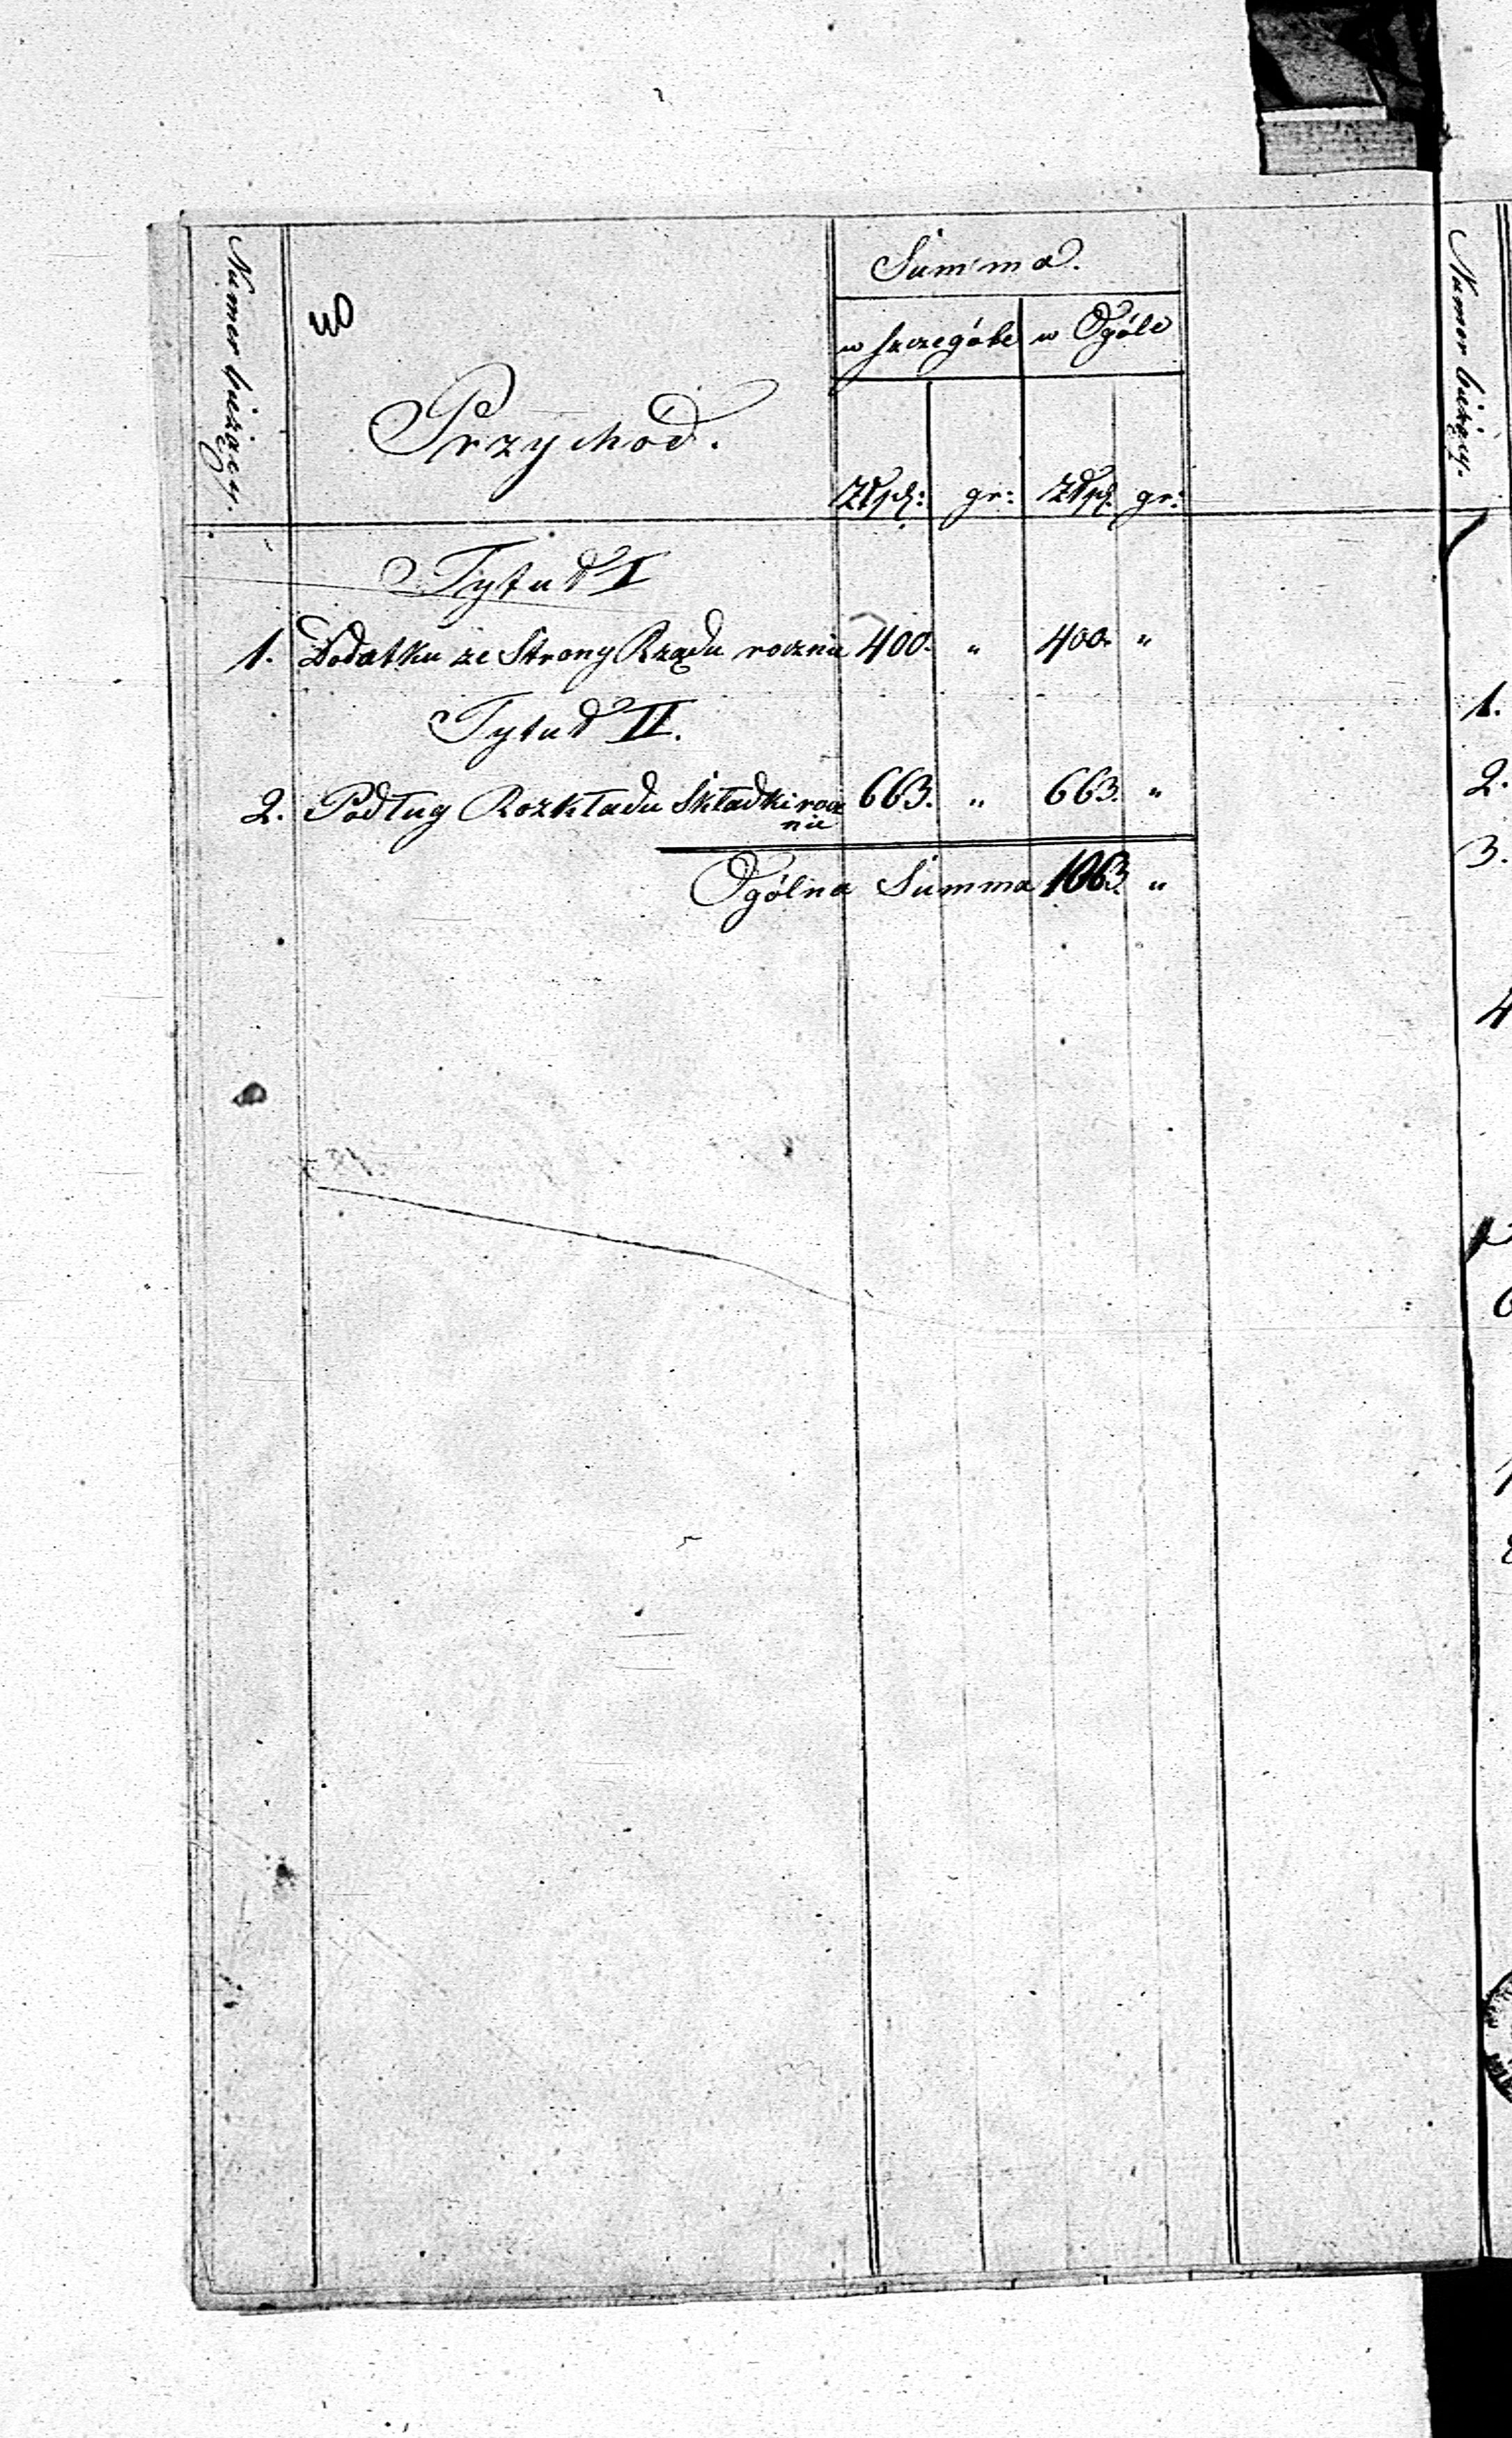 Numer bieżący.
Przychod.
Summa.
w szczególe w Ogóle
Złpl: gr: Złpl. gr:
Tytuł I
1. Dodatku ze Strony Rządu rocznie 400. " 400. "
Tytuł II.
2. Podług Rozkładu Składki rocz 663. " 663. "
nie
Ogólna Summa 1063. "
Numer bieżący.
1.
2.
3.
4